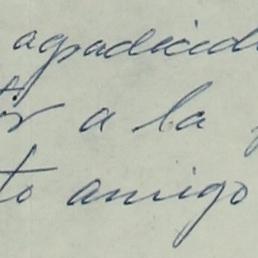 agradecid
a la
to amigo